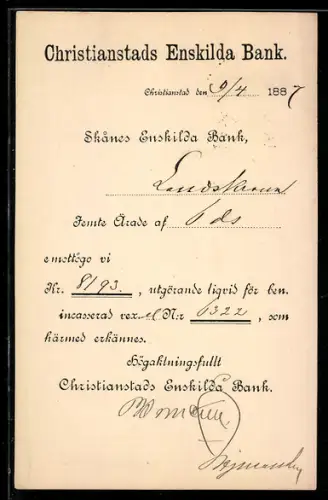 Christianstads Enskilda Bank.
Christianstad den 9/4 1887
Skånes Enskilda Bank,
Landskrona
Jemte Ärade af 6 ds
emottogo vi
Kr. 8193. , utgörande liqvid för ben.
incasserad vexel N:r 6322 , som
härmed erkännes.
Högaktningsfullt
Christianstads Enskilda Bank.